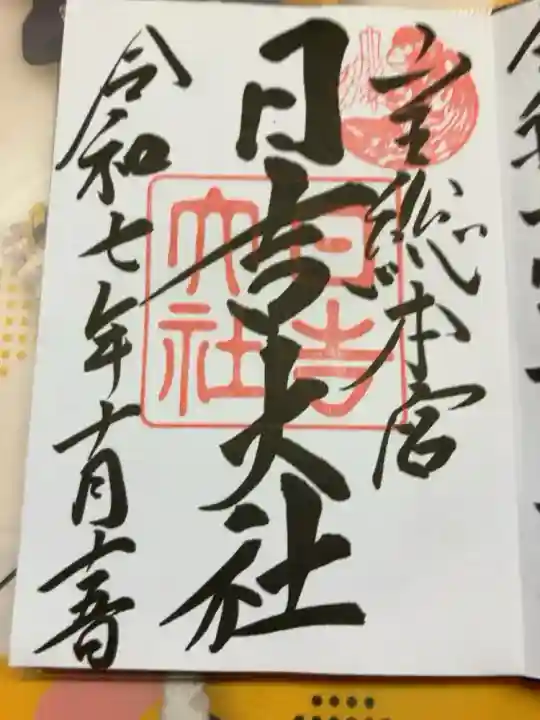 山王総本宮
日吉大社
日吉
大社
令和七年十月十五日